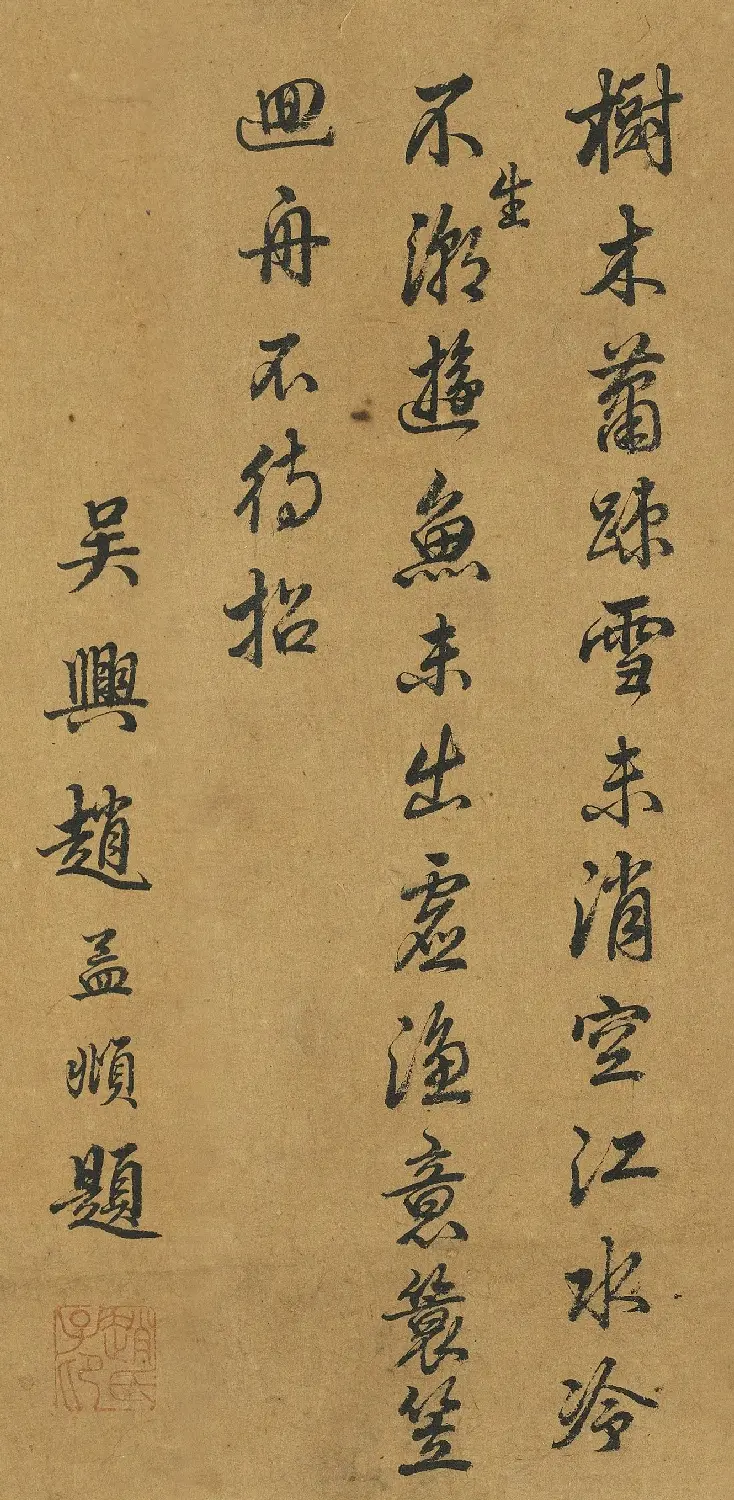 樹木蕭踈雪未消空江水冷
不生潮遊魚未出虛漁意簑笠
迴舟不待招
吳興趙孟頫題
趙氏子昂